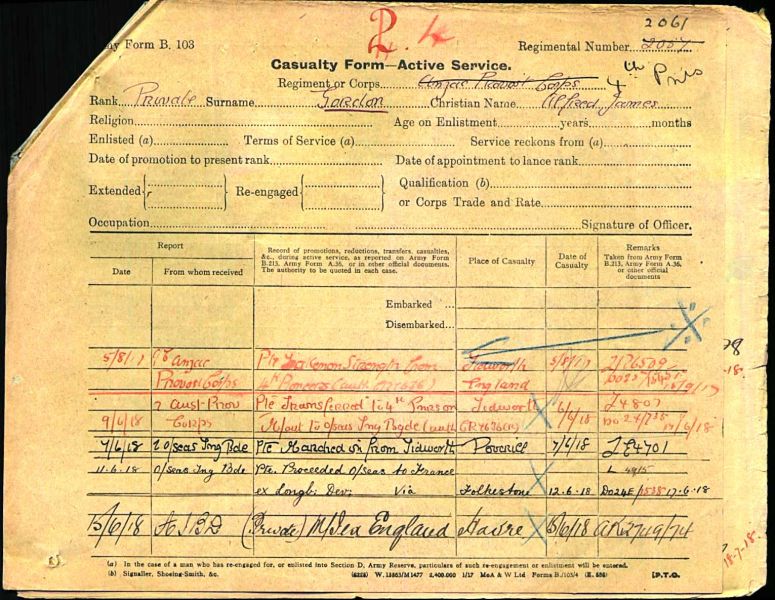 2061
2.4
Army Form B. 103 Regimental Number 2057
Casualty Form—Active Service.
Regiment or Corps Anzac Provost Corps 4th Pnrs
Rank Private Surname Gordon Christian Name Alfred James
Religion Age on Enlistment years months
Enlisted (a) Terms of Service (a) Service reckons from (a)
Date of promotion to present rank Date of appointment to lance rank
Extended Re-engaged Qualification (b)
or Corps Trade and Rate
Occupation Signature of Officer.
Report
Date From whom received
Record of promotions, reductions, transfers, casualties, &c., during active service, as reported on Army Form B.213, Army Form A.36, or in other official documents. The authority to be quoted in each case.
Place of Casualty
Date of Casualty
Remarks
Taken from Army Form B.213, Army Form A.36, or other official documents
Embarked ...
Disembarked...
5/8/17 Anzac Pte Taken on Strength from Tidworth 5/8/17
Provost Corps 4th Pioneers England
Aust Prov Pte Transferred to 4th Tidworth 6/6/18 L4807
9/6/18 Corps M/out to O/seas Tng Bgde
7/6/18 O/seas Tng Bde Pte Marched in from Tidworth Deverill 7/6/18 4701
11.6.18 O/seas Tng Bde Pte. Proceeded O/seas to France L 4915
ex Longb: Dev: Via Folkestone 12.6.18 17.6.18
15/6/18 (Private) England Havre 15/6/18
18.7.18.
(a) In the case of a man who has re-engaged for, or enlisted into Section D, Army Reserve, particulars of such re-engagement or enlistment will be entered.
(b) Signaller, Shoeing-Smith, &c. (6225) W. 13863/M1477 2,400,000 1/17 McA & W Ltd Forms B./103/4 (E. 656) [P.T.O.